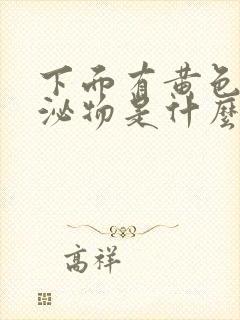 下而有黄色
泌物是什麼
高祥